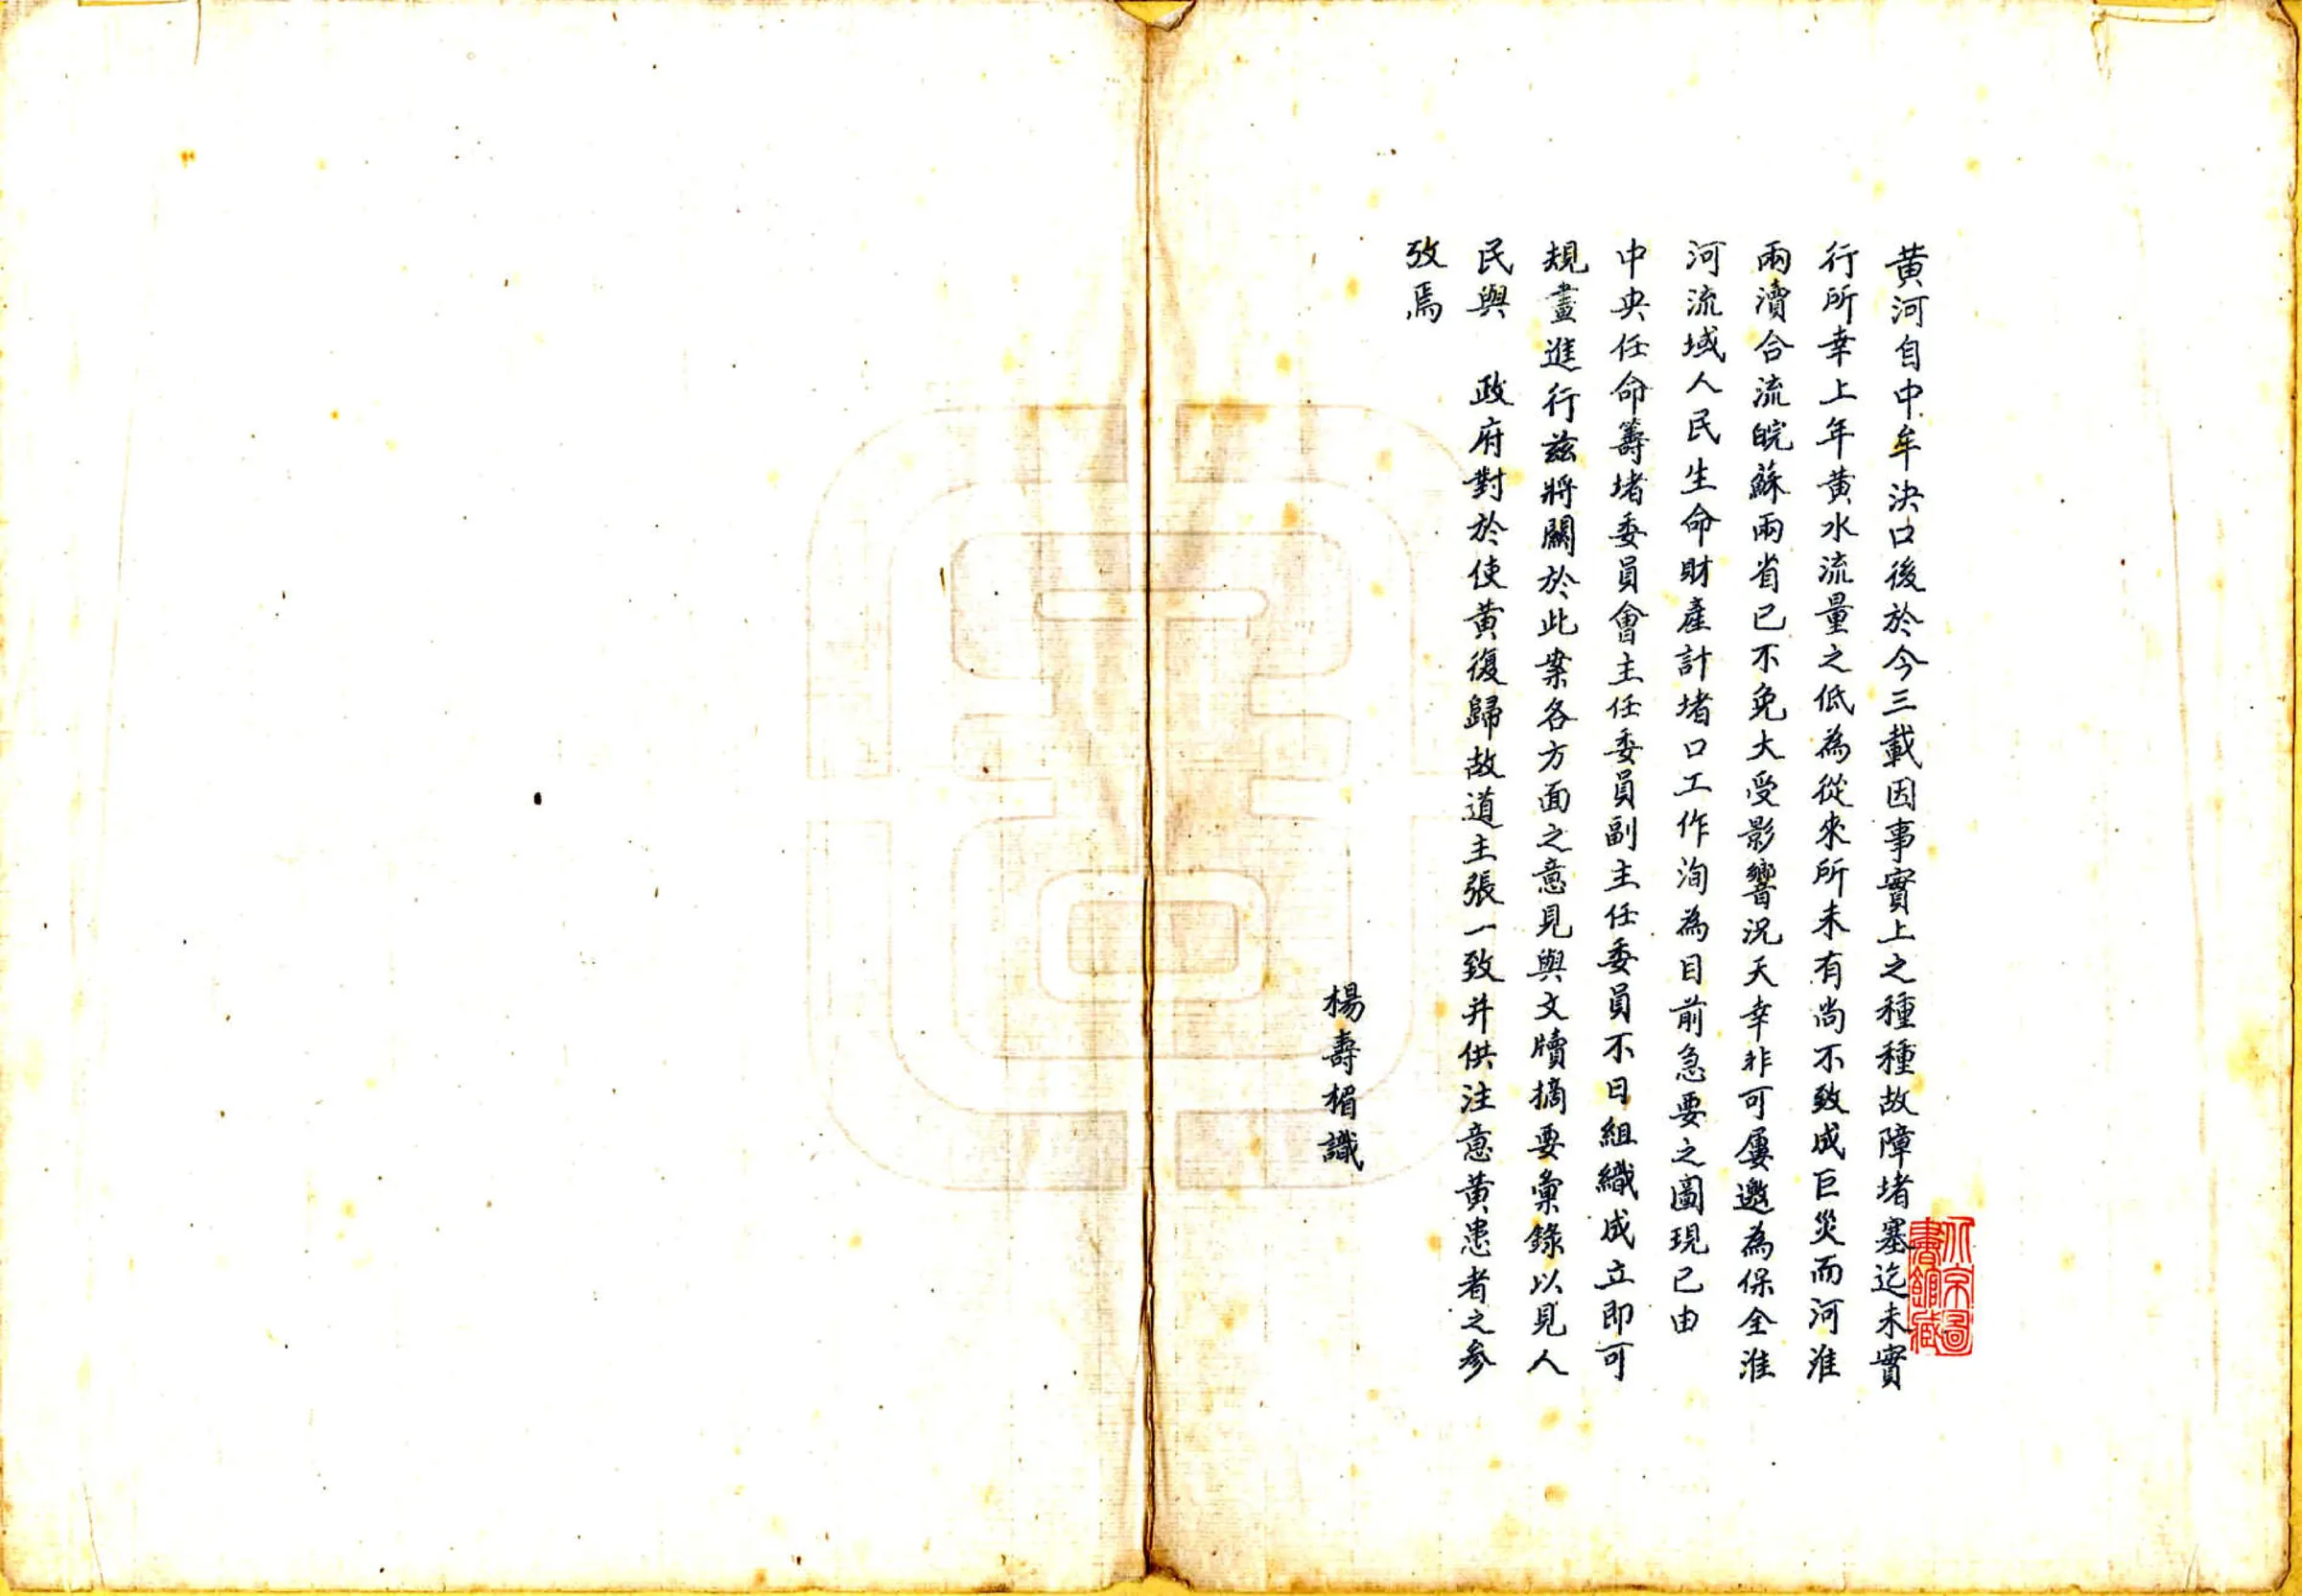 黄河自中牟決口後於今三載因事實上之種種故障堵塞迄未實
行所幸上年黄水流量之低為從來所未有尚不致成巨災而河淮
兩瀆合流皖蘇兩省已不免大受影響況天幸非可屢邀為保全淮
河流域人民生命財產計堵口工作洵為目前急要之圖現已由
中央任命籌堵委員會主任委員副主任委員不日組織成立即可
規畫進行茲將關於此案各方面之意見與文牘摘要彙錄以見人
民與　政府對於使黄復歸故道主張一致并供注意黄患者之參
攷焉
楊壽楣識
北京圖
書館藏